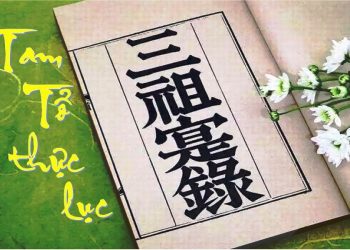 Tam
Tổ
thực
lục
三祖寔錄